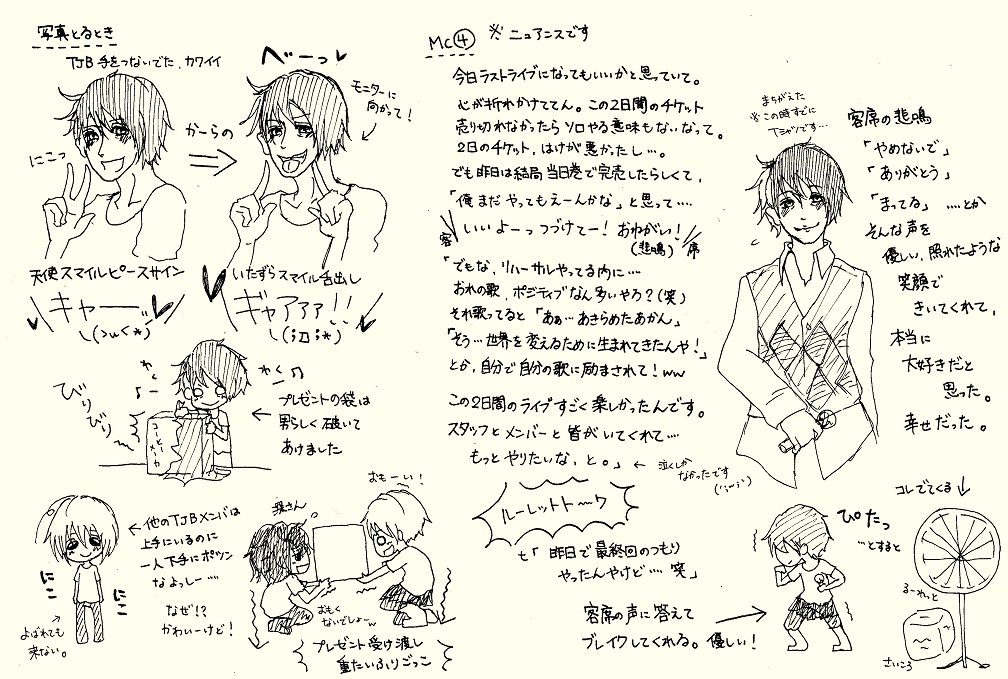 写真とるとき
TJB 手をつないでた、カワイイ
にこっ
からの
べーっ
モニターに
向かって!
天使スマイルピースサイン
キャー
\(>ω<*)
いたずらスマイル舌出し
ギャアアァ!!
\(;□;*)
びりびり
わく
わく
プレゼントの袋は
男らしく破いて
あけました
コーヒーメーカー
←他のTJBメンバは
上手にいるのに
一人下手にポツン
なよっしー…
なぜ!?
かわいーけど!
にこ
にこ
よばれても
来ない。
おもーい!
おもく
ないでしょーw
プレゼント受け渡し
重たいふりごっこ
MC④
※ニュアンスです
今日ラストライブになってもいいかと思っていて。
心が折れかけててん。この2日間のチケット
売り切れなかったらソロやる意味もないなって。
2日のチケット、はけが悪かったし…。
でも昨日は結局当日巻で完売したらしくて、
「俺まだやってもえーんかな」と思って‥‥
客
いいよーっつづけてー!おねがい!
(悲鳴)
席
「でもな、リハーサルやってる内に…
おれの歌、ポジティブなん多いやろ?(笑)
それ歌ってると「あぁ…あきらめたあかん」
「そう…世界を変えるために生まれてきたんや!」
とか、自分で自分の歌に励まされて!ww
この2日間のライブすごく楽しかったんです。
スタッフとメンバーと皆がいてくれて‥‥
もっとやりたいな、と。」
←泣くしか
なかったです
まちがえた
※この時すでに
Tシャツです…
客席の悲鳴
「やめないで」
「ありがとう」
「まってる」‥‥とか
そんな声を
優しい、照れたような
笑顔で
きいてくれて、
本当に
大好きだと
思った。
幸せだった。
ルーレットトーク
も「昨日で最終回のつもり
やったんやけど‥‥笑」
客席の声に答えて
ブレイクしてくれる。優しい!
ぴたっ
…とすると
コレでてくる
るーれっと
さいころ